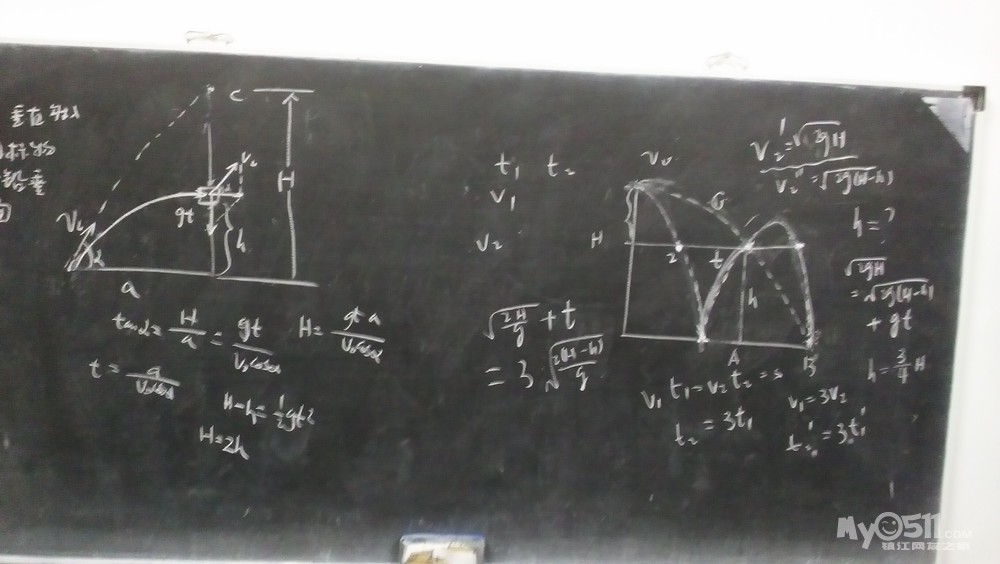 垂直
铅垂
C
H
V₀
α
gt
h
a
tanα = H/a = gt/V₀cosα
H = gt a/V₀cosα
t = a/V₀cosα
H-h = ½gt²
H = 2h
t₁ t₂
v₁
v₂
√(2H/g) + t
= 3√(2(H-h)/g)
H
2
t
h
A
B
v₁t₁ = v₂t₂ = s
t₂ = 3t₁
v₁ = 3v₂
t₂' = 3t₁'
V₂' = √2gH
V₂'' = √2g(H-h)
h = ?
√2gH
= √2g(H-h)
+ gt
h = ¾H
My0511.COM
镇江网友之家